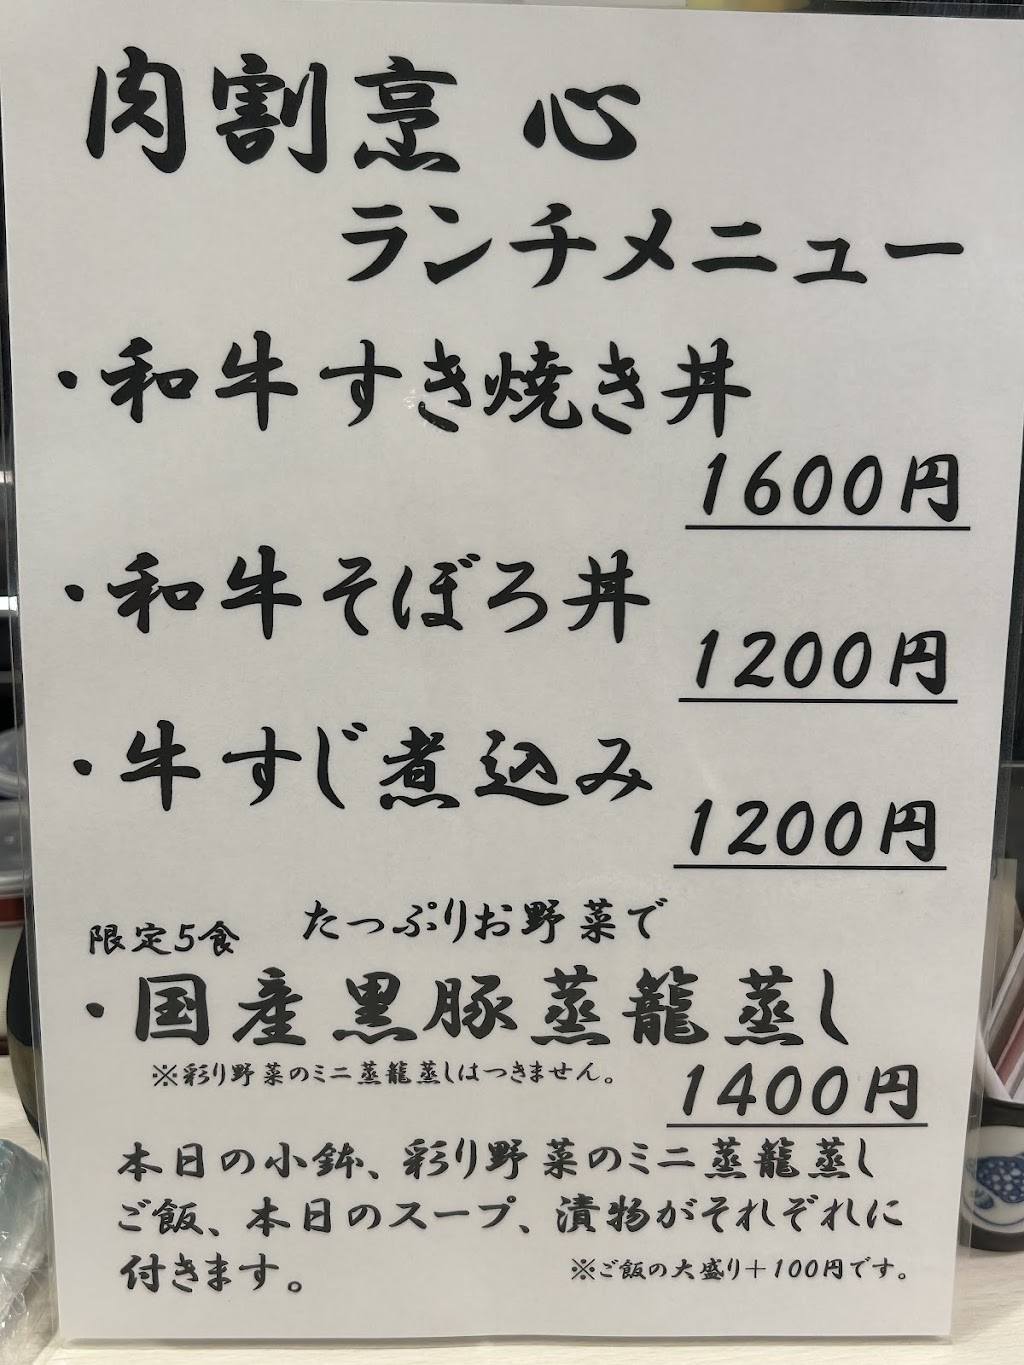 肉割烹 心
ランチメニュー
・和牛すき焼き丼
1600円
・和牛そぼろ丼
1200円
・牛すじ煮込み
1200円
限定5食 たっぷりお野菜で
・国産黒豚蒸籠蒸し
※彩り野菜のミニ蒸籠蒸しはつきません。
1400円
本日の小鉢、彩り野菜のミニ蒸籠蒸し
ご飯、本日のスープ、漬物がそれぞれに
付きます。 ※ご飯の大盛り+100円です。